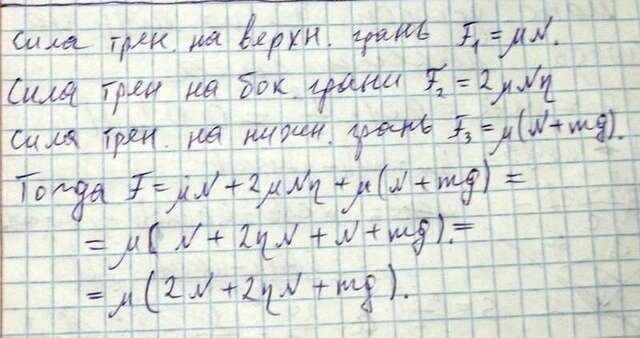 Сила трен. на верхн. грань F₁ = μN.
Сила трен на бок. грани F₂ = 2μNη
Сила трен. на нижн. грань F₃ = μ(N+mg).
Тогда F = μN + 2μNη + μ(N+mg) =
= μ(N + 2ηN + N + mg). =
= μ(2N + 2ηN + mg).